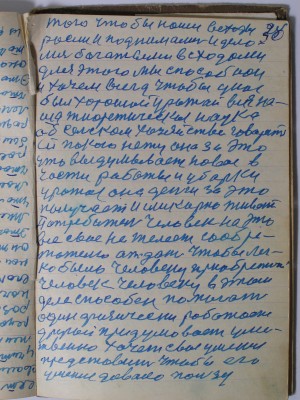 того чтобы наши всходы 28
росли и поднимали и дело
ми богатыми всходами
для этого мы способ
и хочем всегда чтобы у нас
был хороший урожай
теоретическая наука
об сельском хозяйстве говорят
её пока нету она за это
что выдумывает новое в
части работы и уборки
урожая она деньги за это
получает и шикарно живет
потрибител человек на это
чтобы лег
ко было человеку приобретать
человек человеку в этом
деле способен помогать
один физически работает
другой придумовает умс
твенно хочат свае умение
представит чтобы его
умение давало ползу